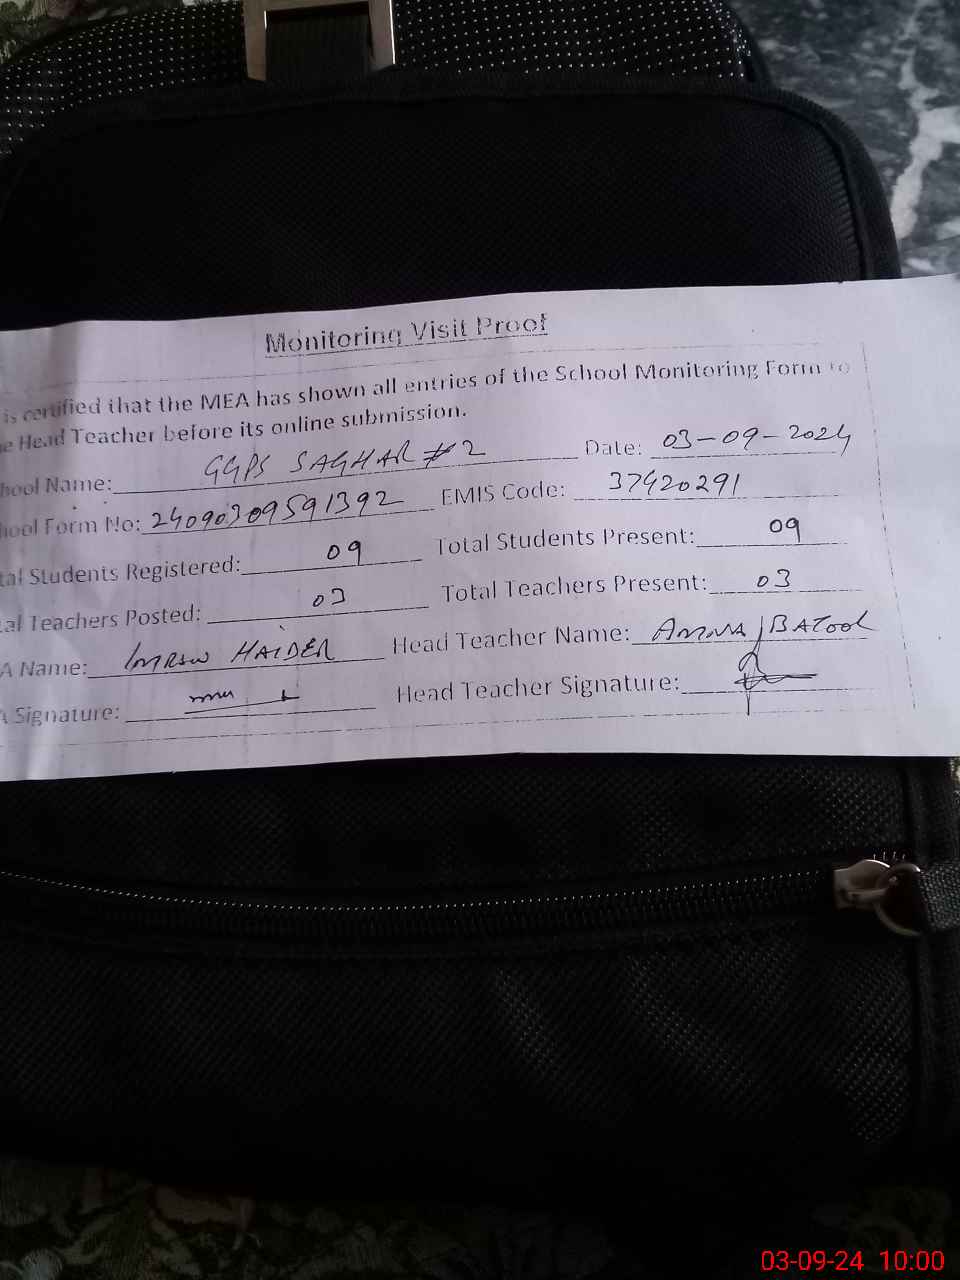 Monitoring Visit Proof
is certified that the MEA has shown all entries of the School Monitoring Form to
e Head Teacher before its online submission.
hool Name: GGPS SAGHAR #2 Date: 03-09-2024
hool Form No: 24090309591392 EMIS Code: 37420291
tal Students Registered: 09 Total Students Present: 09
tal Teachers Posted: 03 Total Teachers Present: 03
A Name: IMRAN HAIDER Head Teacher Name: AMNA BATOOL
A Signature: Head Teacher Signature:
03-09-24 10:00